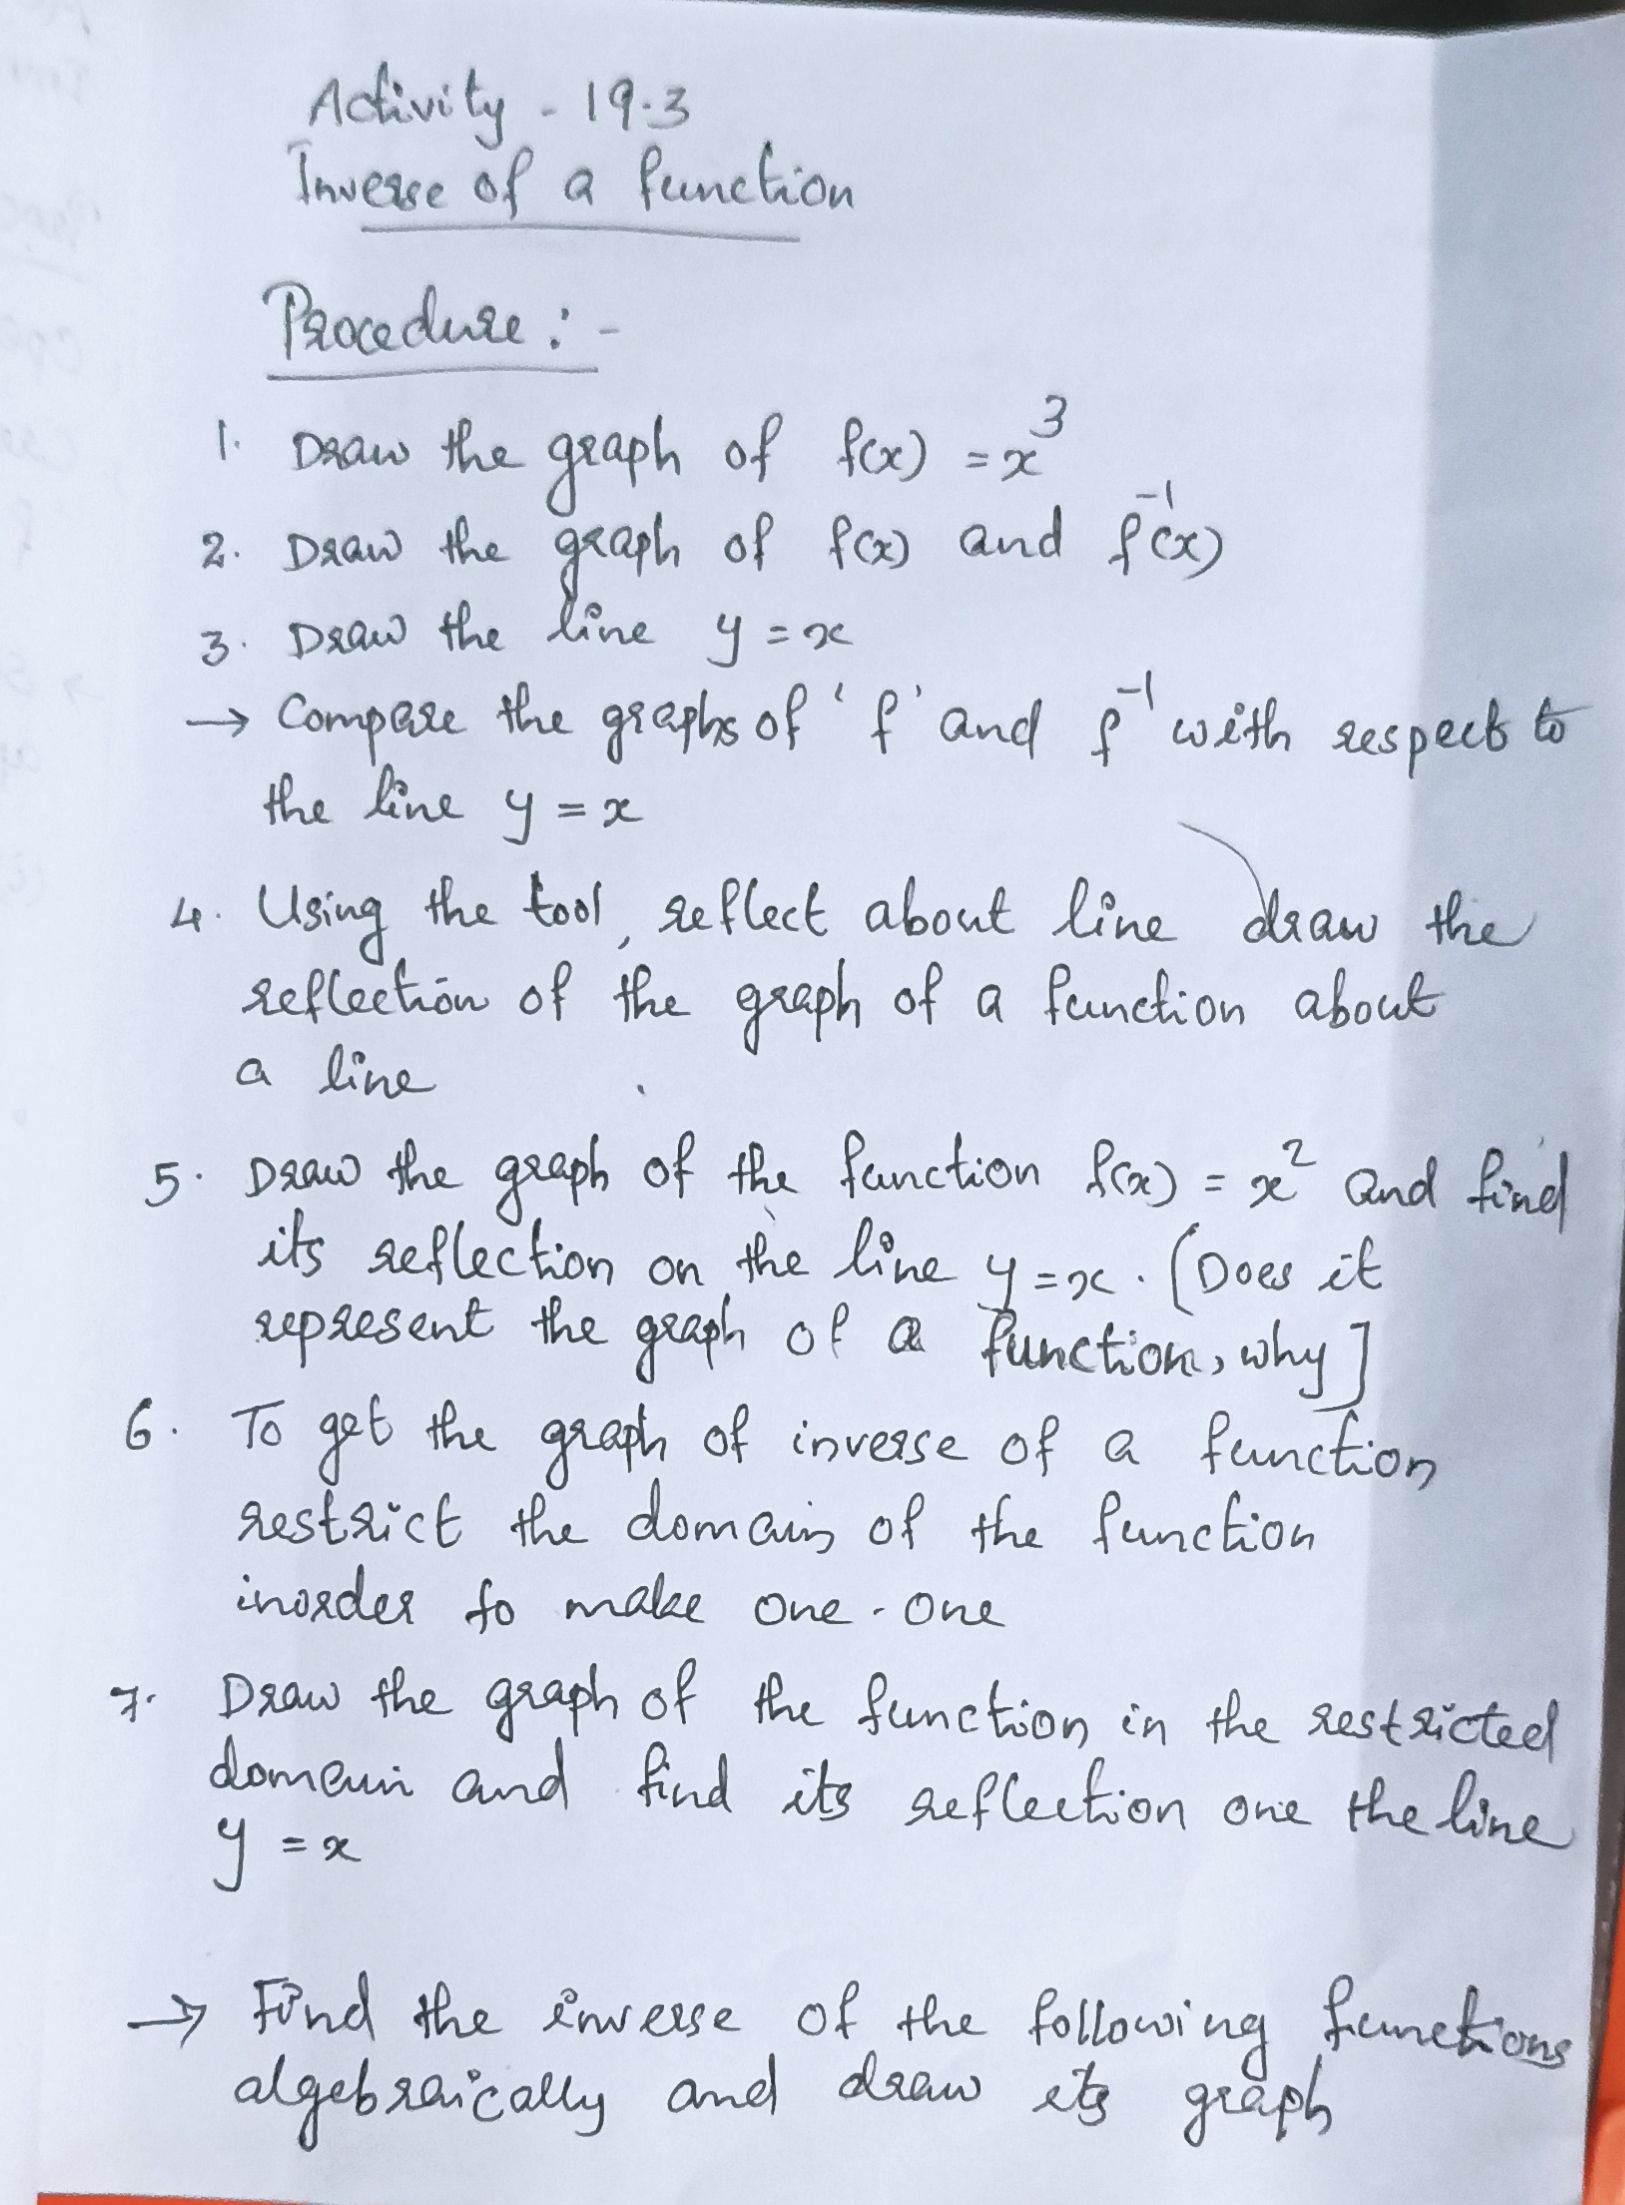 Activity - 19.3
Inverse of a function
Procedure : -
1. Draw the graph of f(x) = x³
2. Draw the graph of f(x) and f⁻¹(x)
3. Draw the line y = x
→ Compare the graphs of 'f' and f⁻¹ with respect to
the line y = x
4. Using the tool, reflect about line draw the
reflection of the graph of a function about
a line
5. Draw the graph of the function f(x) = x² and find
its reflection on the line y = x. (Does it
represent the graph of a function, why]
6. To get the graph of inverse of a function
restrict the domain of the function
inorder to make one - one
7. Draw the graph of the function in the restricted
domain and find its reflection one the line
y = x
→ Find the inverse of the following functions
algebraically and draw its graph